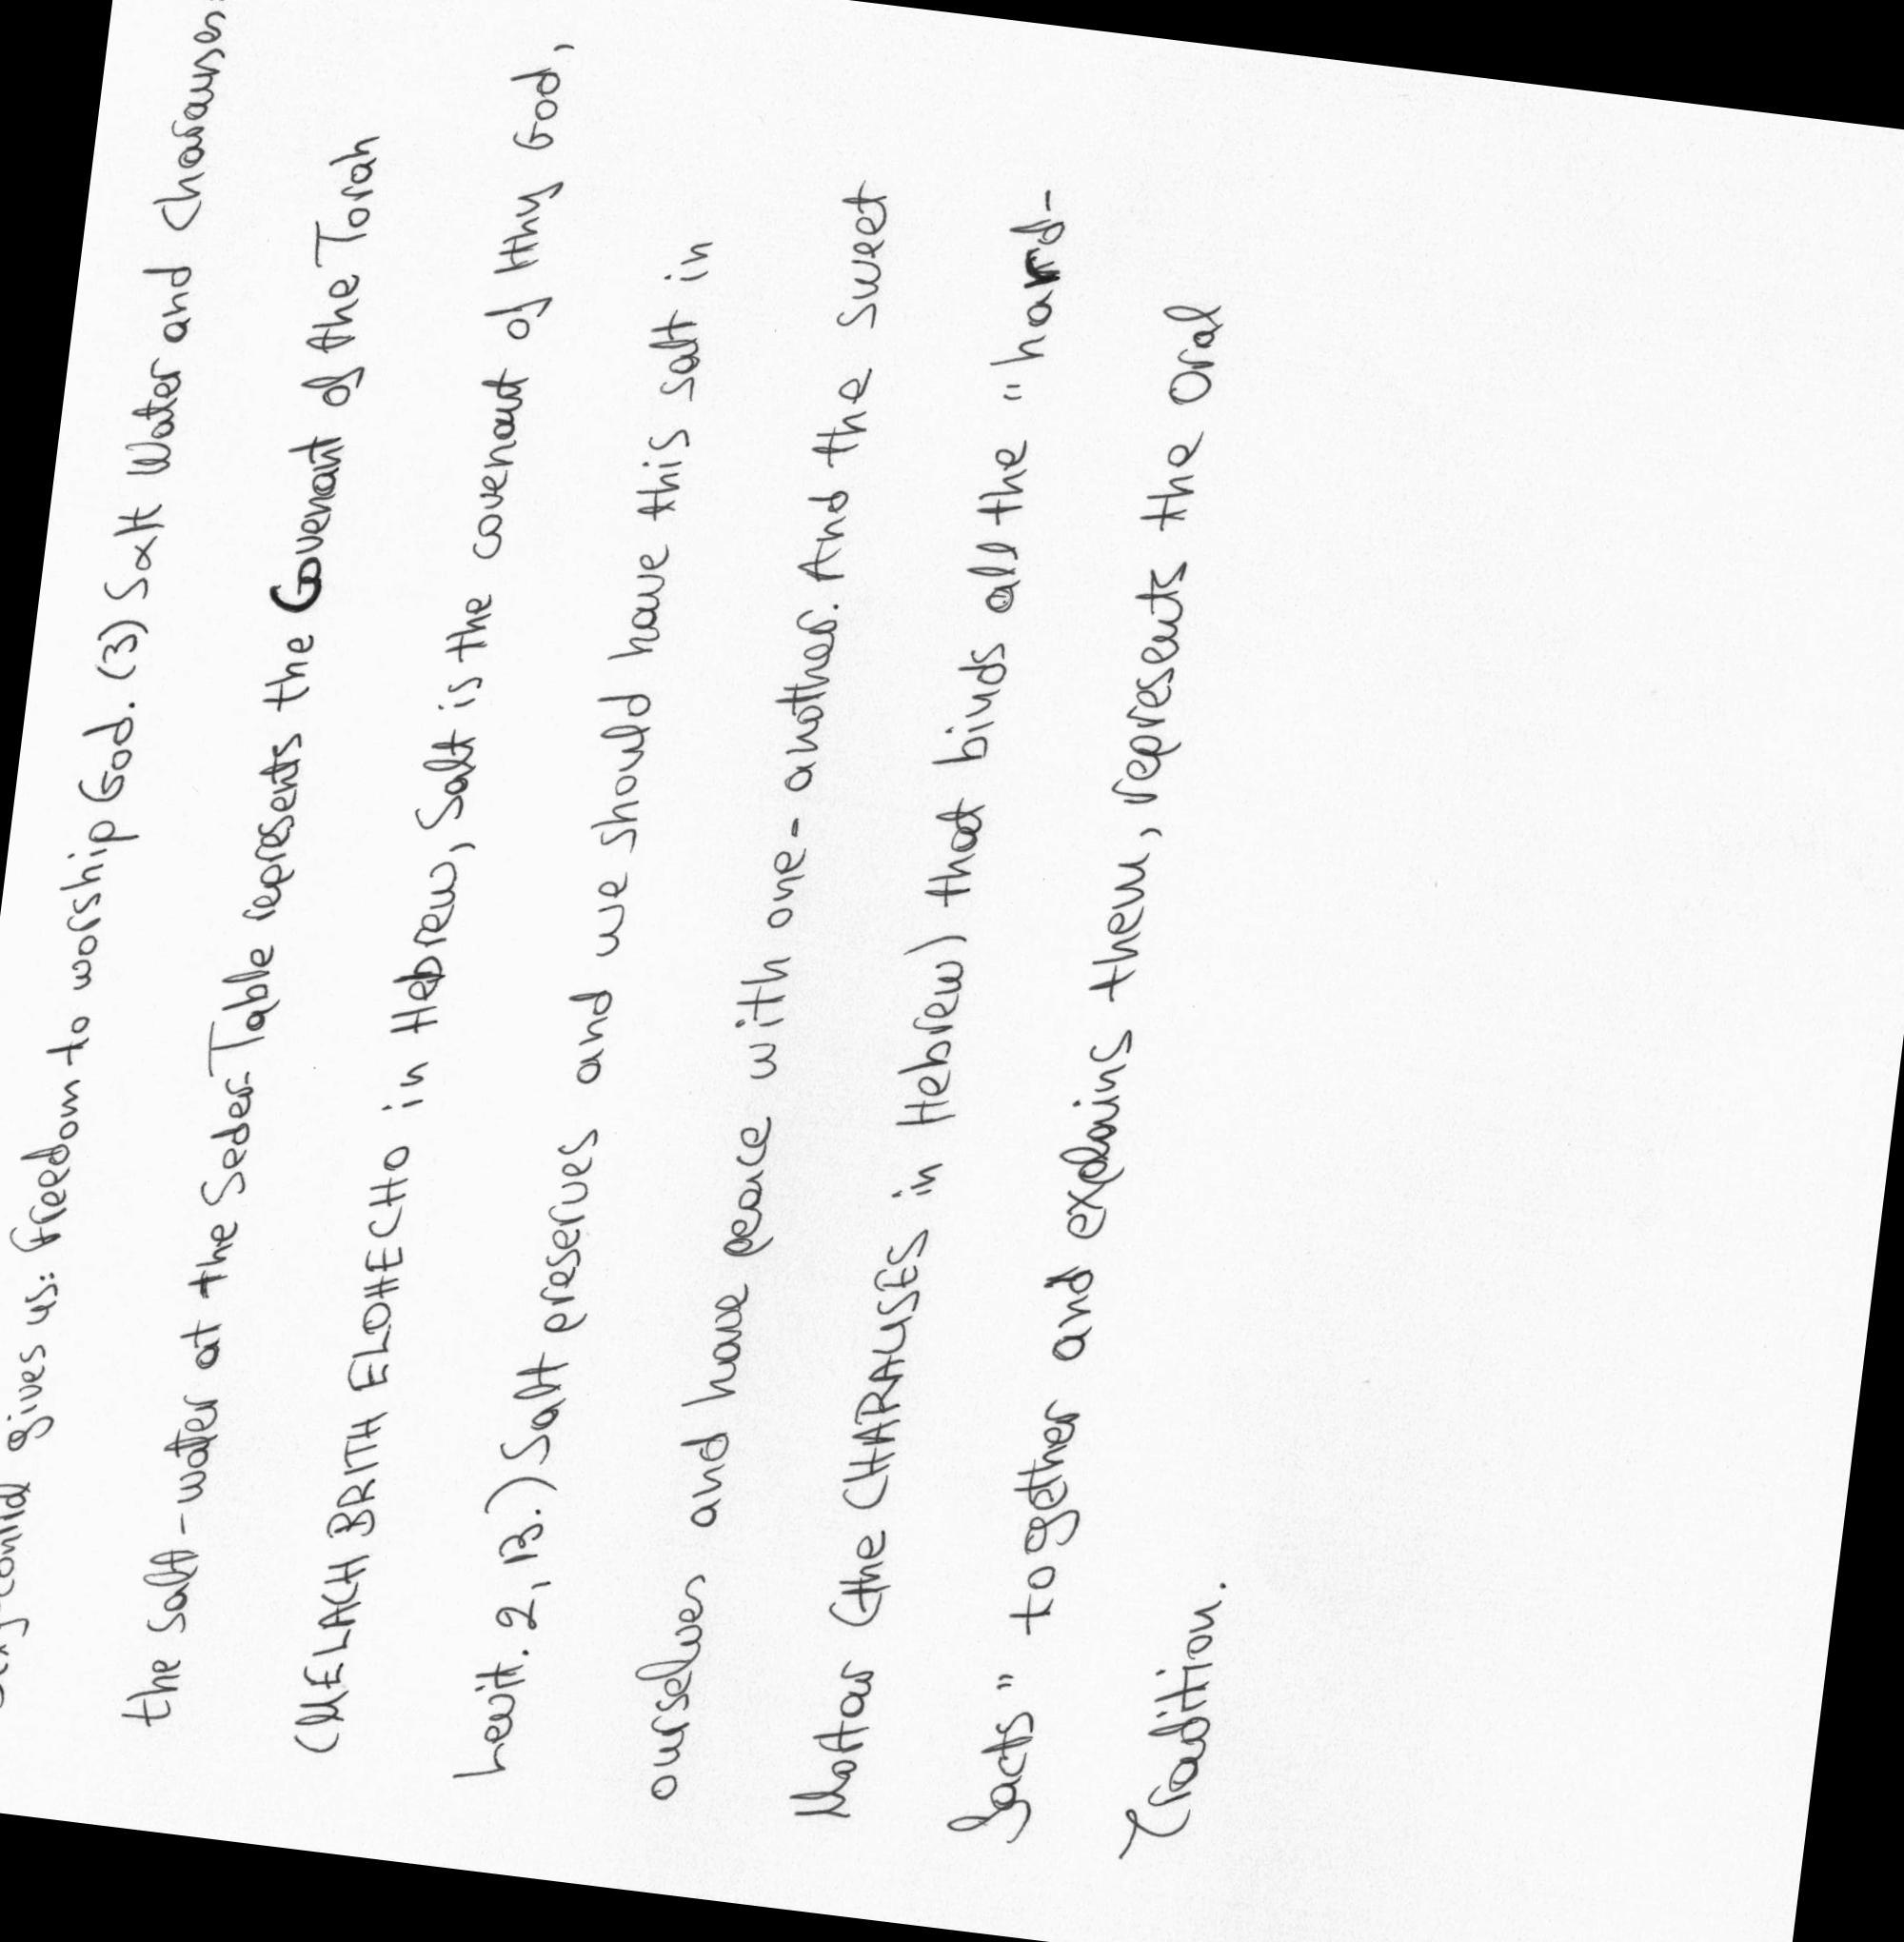 gives us: freedom to worship God. (3) Salt Water and Charauses:
the salt-water at the Seder-Table represents the Covenant of the Torah
(MELACH BRITH ELOHECHO in Hebrew, Salt is the covenant of thy God,
Levit. 2,13.) Salt preserves and we should have this salt in
ourselves and have peace with one-another. And the sweet
Mortar (the CHARAUSES in Hebrew) that binds all the "hard-
facts" together and explains them, represents the Oral
Tradition.